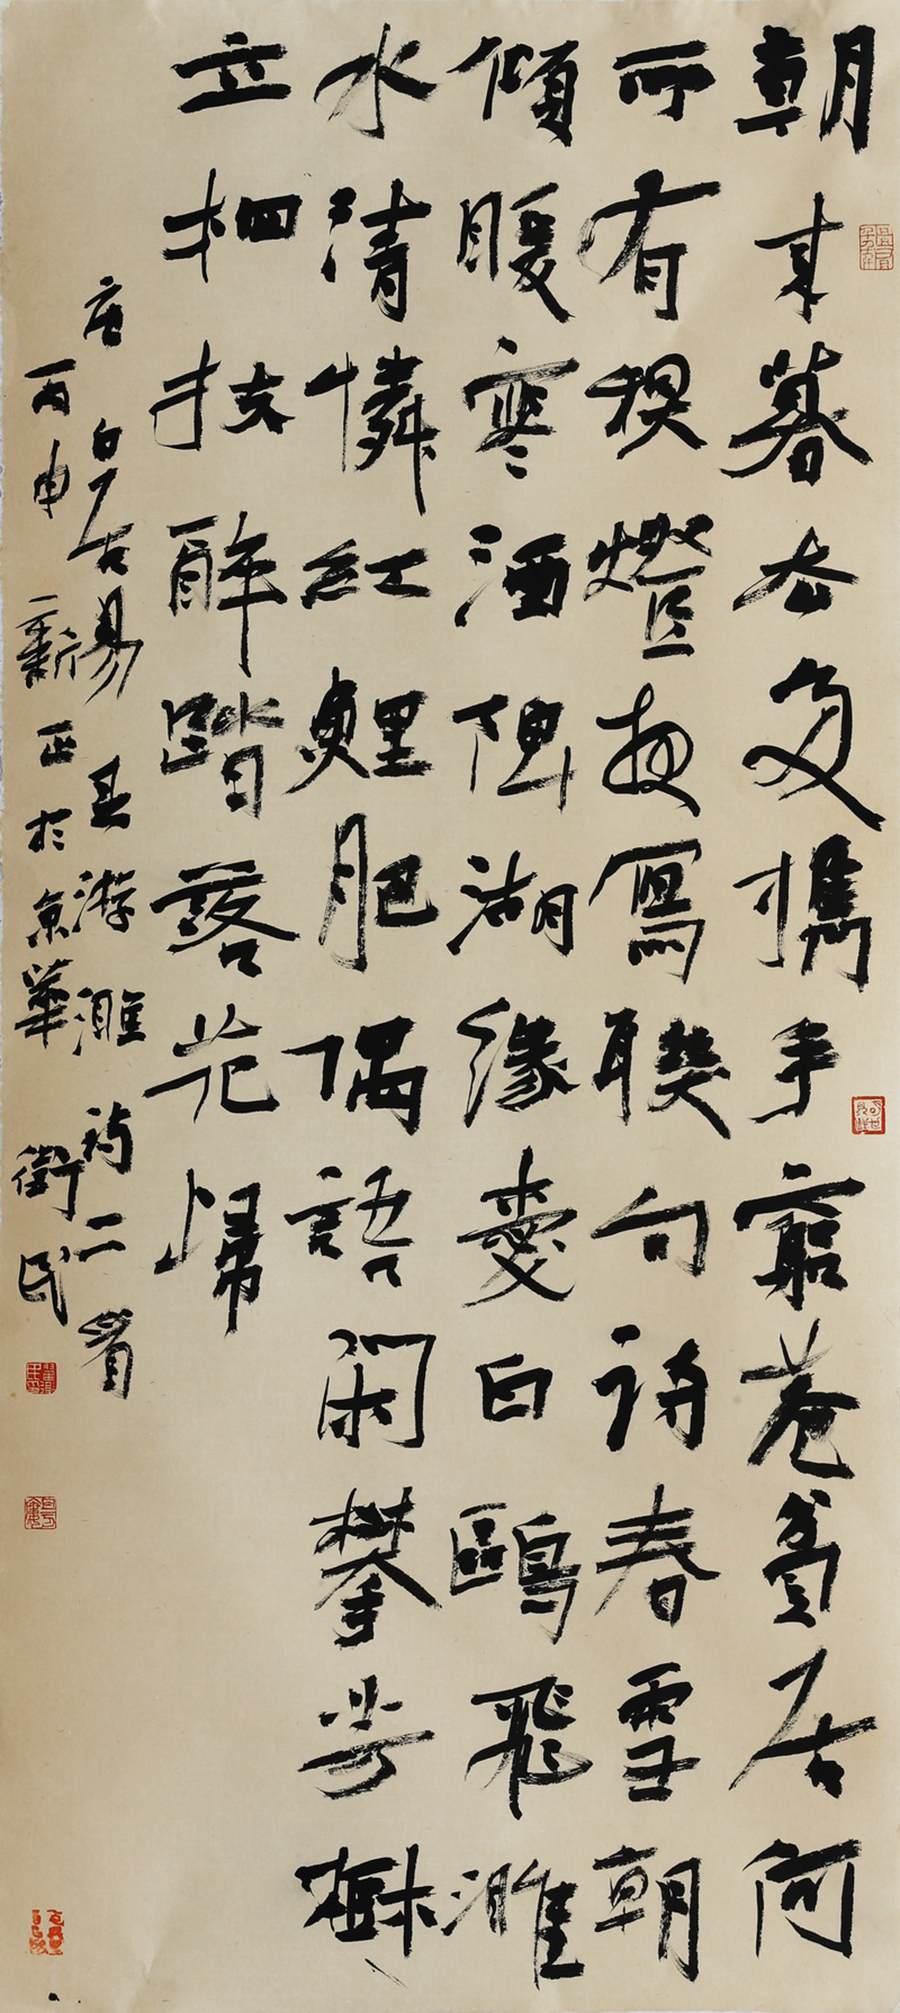 朝来暮去多攜手窮巷貧居何
所有秋燈夜寫聯句詩春雪朝
傾暖寒酒陴湖綠愛白鷗飛濉
水清憐紅鯉肥偶語閑攀芳樹
立相扶醉踏落花歸
唐白居易游濉詩二首
丙申新正於京華衛民